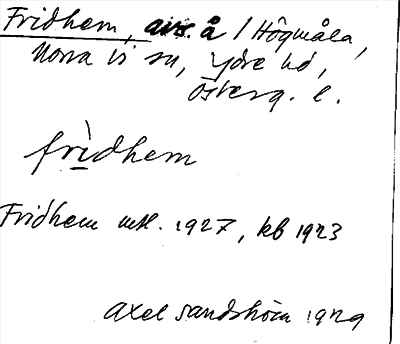 Fridhem, avs. å / Högmåla,
Norra Vi sn, Ydre hd,
Österg. l.
frìdhem
Fridhem mtl. 1927, kb 1923
Axel Sandström 1929